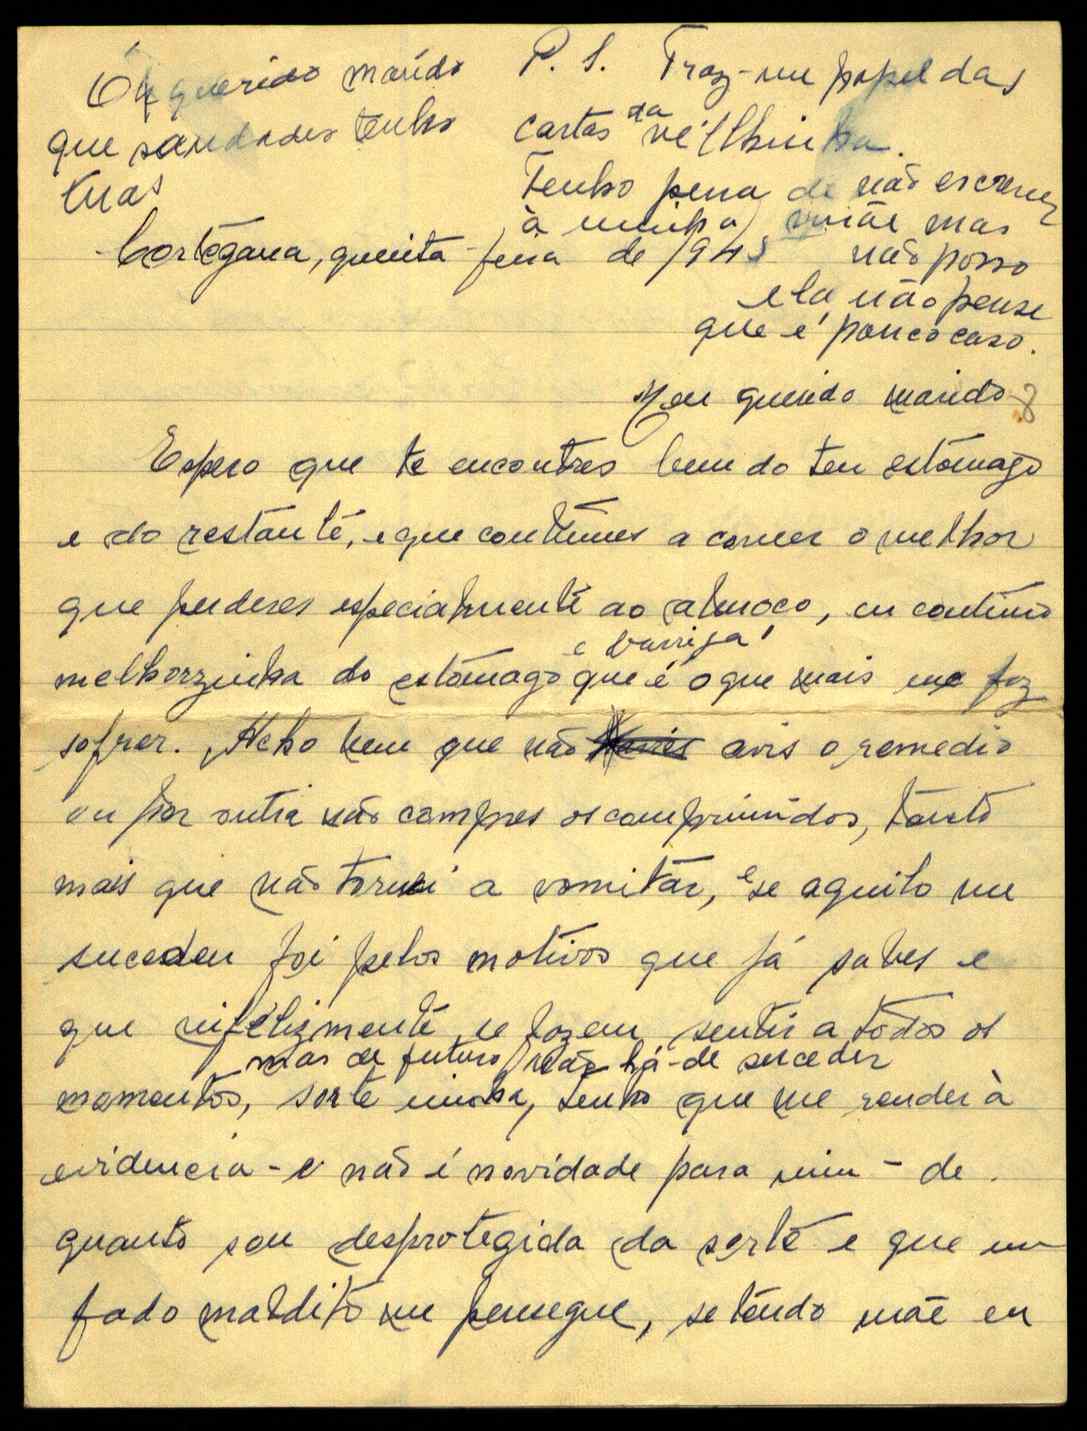 Oh querido marido
que saudades tenho
tuas
P. S. Traz-me papel das
cartas da velhinha.
Tenho pena de não escrever
à minha mãe mas
não posso
ela não pense
que é pouco caso.
Cortegana, quinta-feira de 1945
Meu querido marido
Espero que te encontres bem do teu estômago
e do restante, e que continues a comer o melhor
que puderes especialmente ao almoço, eu continuo
melhorzinha do estômago e barriga que é o que mais me faz
sofrer. Acho bem que não avis o remedio
ou por outra não compres os comprimidos, tanto
mais que não tornei a vomitar, e se aquilo me
sucedeu foi pelos motivos que já sabes e
que infelizmente se fazem sentir a todos os
momentos, mas de futuro não há-de suceder
sorte minha, tenho que me render à
evidencia - e não é novidade para mim - de
quanto sou desprotegida da sorte e que um
fado maldito me persegue, se tendo mãe eu